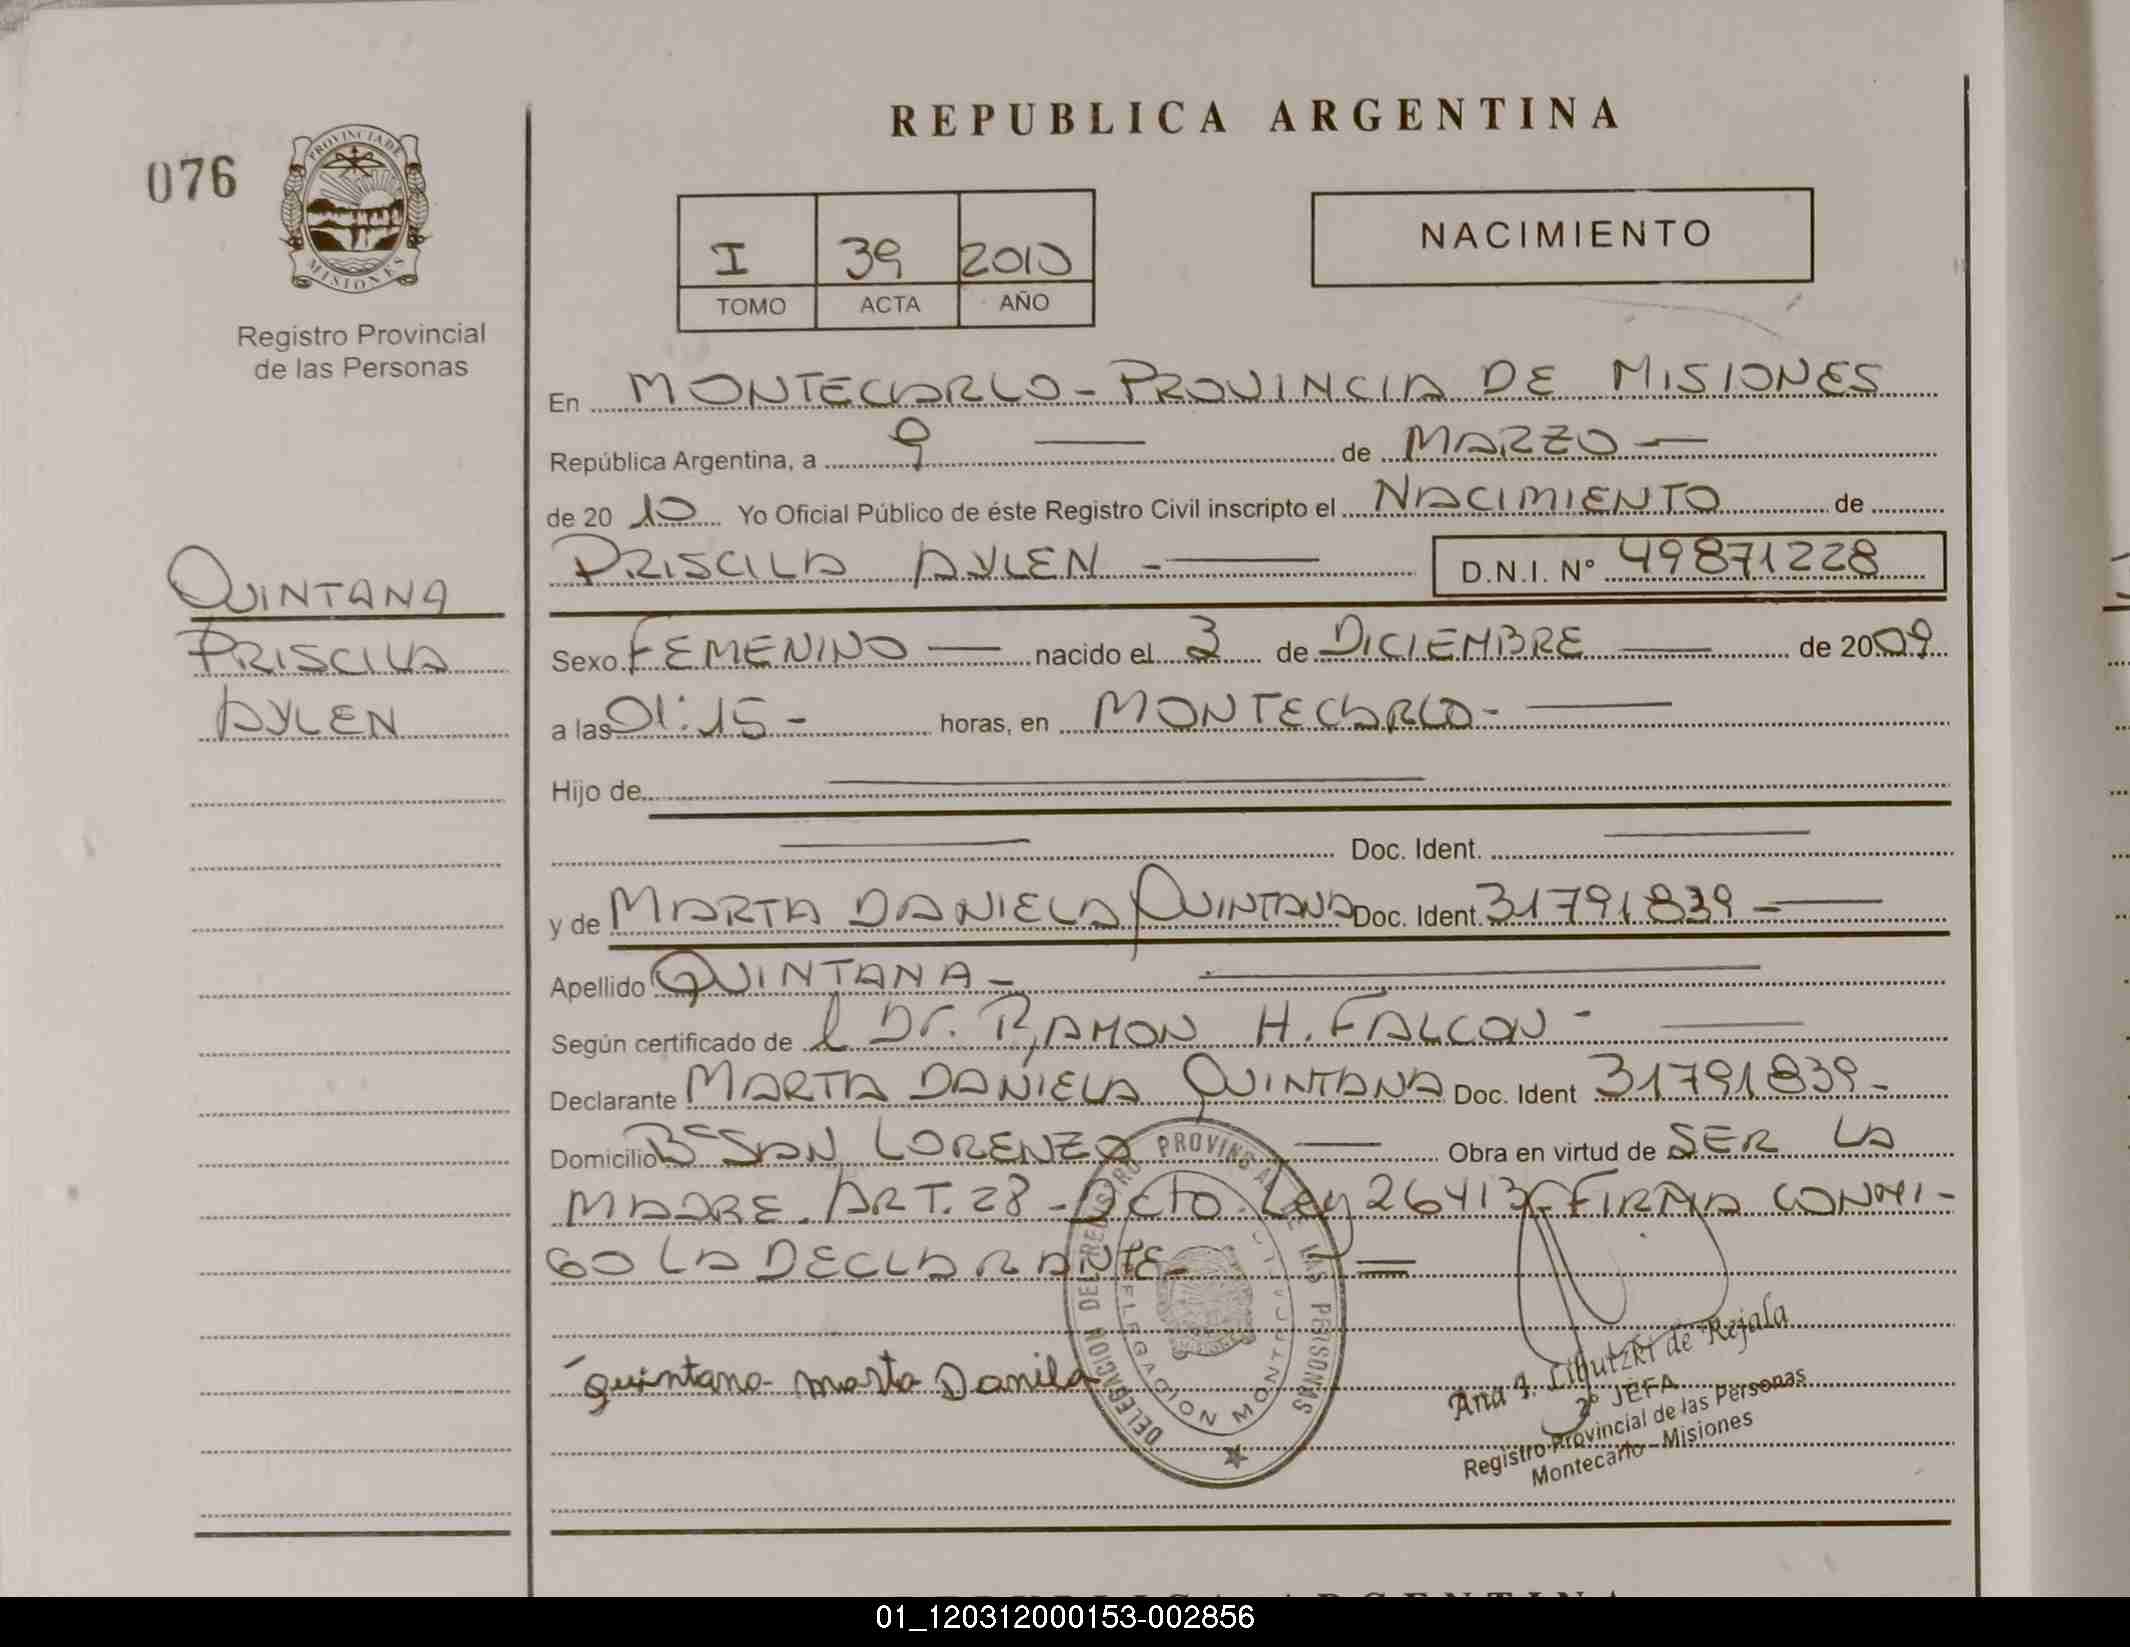 REPUBLICA ARGENTINA
076
PROVINCIA DE MISIONES
Registro Provincial
de las Personas
I 39 2010
TOMO ACTA AÑO
NACIMIENTO
En MONTECARLO - PROVINCIA DE MISIONES
República Argentina, a 9 de MARZO
de 20 10 Yo Oficial Público de éste Registro Civil inscripto el NACIMIENTO de
PRISCILA AYLEN - D.N.I. N° 49871228
QUINTANA
PRISCILA
AYLEN
Sexo FEMENINO nacido el 3 de DICIEMBRE de 2009
a las 01:15 - horas, en MONTECARLO -
Hijo de
Doc. Ident.
y de MARTA DANIELA QUINTANA Doc. Ident. 31791839 -
Apellido QUINTANA -
Según certificado de l Dr. RAMON H. FALCON -
Declarante MARTA DANIELA QUINTANA Doc. Ident 31791839 -
Domicilio Bº SAN LORENZO Obra en virtud de SER LA
MADRE. ART. 28 - Dcto. Ley 26413 - FIRMA CONMI -
GO LA DECLARANTE -
quintana marta Danila
DELEGACION DEL REGISTRO PROVINCIAL DE LAS PERSONAS
Ana I. de Rejala
2° JEFA
Registro Provincial de las Personas
Montecarlo - Misiones
01_120312000153-002856